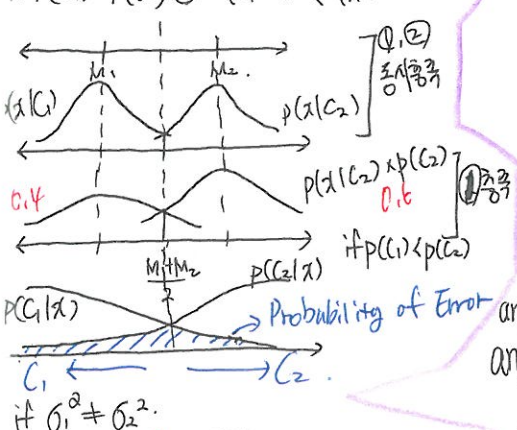 M₁ M₂.
①,②
동시충족
(x|C₁) p(x|C₂)
p(x|C₂) × p(C₂)
0.4 0.6
①충족
if p(C₁) < p(C₂)
M₁+M₂
2
p(C₂|x)
p(C₁|x)
Probability of Error
C₁ C₂.
if σ₁² ≠ σ₂².